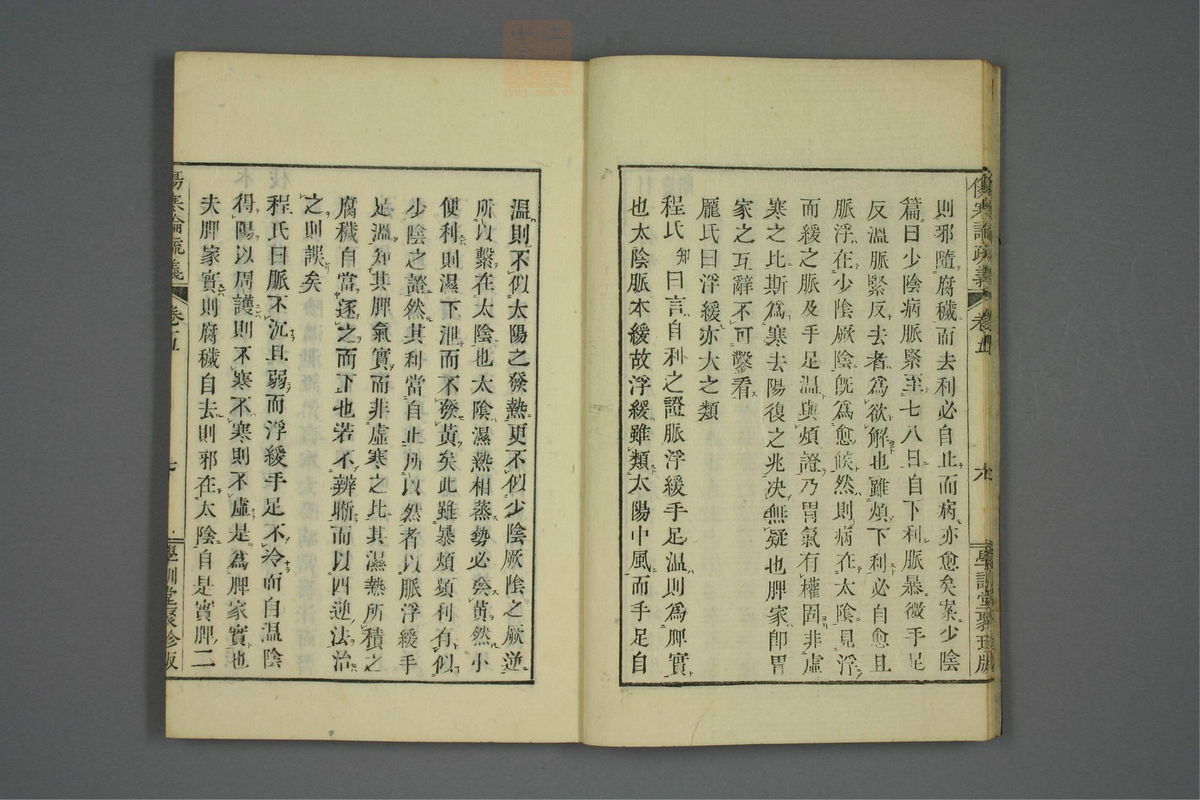 傷寒論疏義 卷五 六 學訓堂聚珍版
則邪隨腐穢而去利必自止而病亦愈矣案少陰
篇曰少陰病脈緊至七八日自下利脈暴微手足
反溫脈緊反去者爲欲解也雖煩下利必自愈且
脈浮在少陰厥陰旣爲愈候然則病在太陰見浮
而緩之脈及手足溫與煩證乃胃氣有權固非虛
寒之比斯爲寒去陽復之兆決無疑也脾家卽胃
家之互辭不可鑿看
龐氏曰浮緩亦大之類
程氏知曰言自利之證脈浮緩手足溫則爲脾實
也太陰脈本緩故浮緩雖類太陽中風而手足自
溫則不似太陽之發熱更不似少陰厥陰之厥逆
所以繫在太陰也太陰濕熱相蒸勢必發黃然小
便利則濕下泄而不發黃矣此雖暴煩頻利有似
少陰之證然其利當自止所以然者以脈浮緩手
足溫知其脾氣實而非虛寒之比其濕熱所積之
腐穢自當逐之而下也若不辨晰而以四逆法治
之則誤矣
程氏曰脈不沉且弱而浮緩手足不冷而自溫陰
得陽以周護則不寒不寒則不虛是爲脾家實也
夫脾家實則腐穢自去則邪在太陰自是實脾二
傷寒論疏義 卷五 七 學訓堂聚珍版